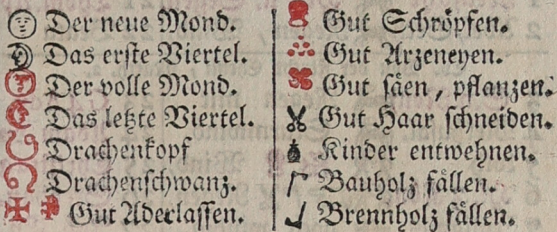 Der neue Mond.
Das erste Viertel.
Der volle Mond.
Das letzte Viertel.
Drachenkopf
Drachenschwanz.
Gut Aderlassen.
Gut Schröpfen.
Gut Arzeneyen.
Gut säen, pflanzen.
Gut Haar schneiden.
Kinder entwehnen.
Bauholz fällen.
Brennholz fällen.